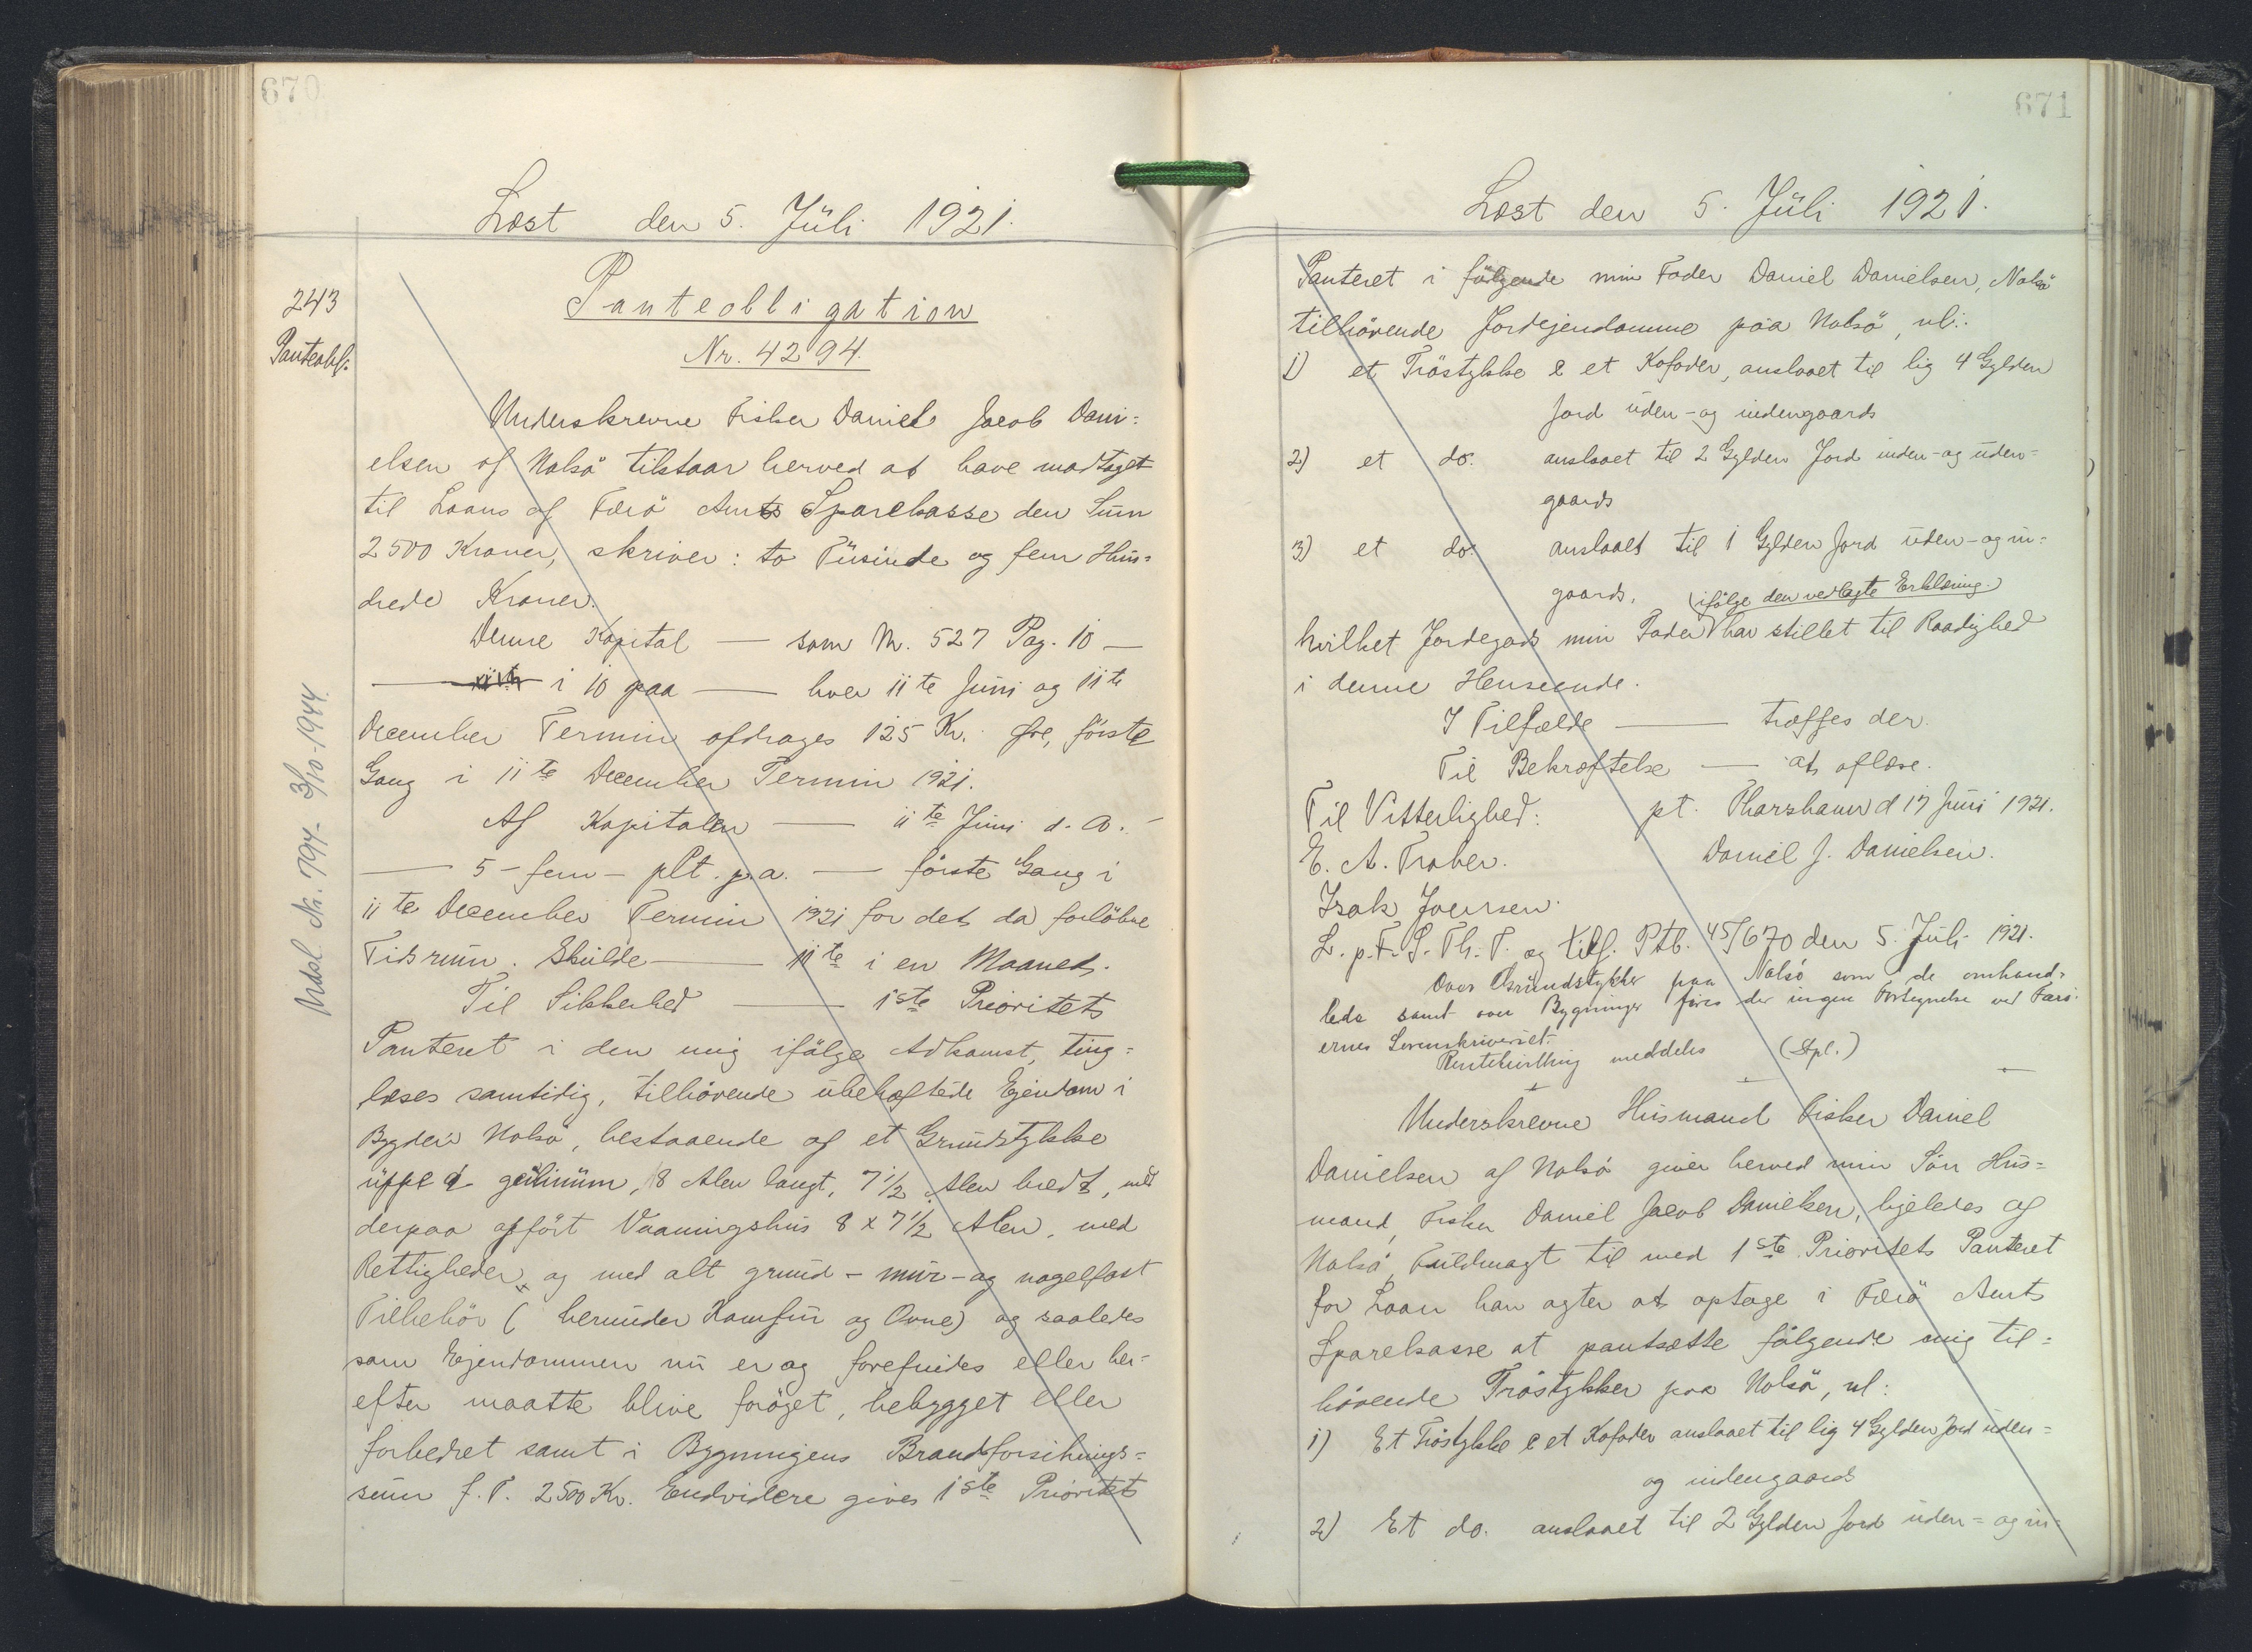 670
Læst den 5. Juli 1921.
243
Panteobl.
Panteobligation
Nr. 4294.
Underskrevne Fisker Daniel Jacob Dani=
elsen af Nolsö tilstaar herved at have modtaget
til Laans af Færö Amts Sparekasse den Sum
2500 Kroner, skriver: to Tusinde og fem Hun=
drede Kroner.
Denne Kapital — som Nr. 527 Pag. 10 —
— i 10 paa — hver 11te Juni og 11te
December Termin afdrages 125 Kr. Øre, förste
Gang i 11te December Termin 1921.
Af Kapitalen — 11te Juni d. A. —
— 5 - fem - pCt. p.a. — förste Gang i
11te December Termin 1921 for det da forlöbne
Tidsrum. Skulde — 11te i en Maaned.
Til Sikkerhed — 1ste Prioritets
Panteret i den mig ifölge Adkomst, ting=
læses samtidig, tilhörende ubehæftede Ejendom i
Bygden Nolsö, bestaaende af et Grundstykke
uppe á gulinum, 8 Alen langt, 7 1/2 Alen bredt, med
derpaa opfört Vaaningshus 8 x 7 1/2 Alen, med
Rettigheder og med alt grund - mur - og nagelfast
Tilbehör (herunder Komfur og Ovne) og saaledes
som Ejendommen nu er og forefindes eller her=
efter maatte blive foröget, bebygget eller
forbedret samt i Bygningens Brandforsikrings=
sum f. T. 2500 Kr. Endvidere gives 1ste Prioritets
Udsl. Nr. 794 - 3/10-1944.
671
Læst den 5. Juli 1921.
Panteret i fölgende min Fader Daniel Danielsen, Nolsö
tilhörende Jordejendomme paa Nolsö, nl:.
1) et Tröstykke & et Kofoder, anslaaet til lig 4 Gylden
Jord uden - og indengaards
2) et do. anslaaet til 2 Gylden Jord inden - og uden=
gaards
3) et do. anslaaet til 1 Gylden Jord uden - og in=
gaards,
(ifölge den vedlagte Erklæring.)
hvilket Jordegods min Fader har stillet til Raadighed
i denne Henseende.
I Tilfælde — træffes der.
Til Bekræftelse — at aflæse.
Til Vitterlighed: pt. Thorshavn d 17 Juni 1921.
E. A. Traber. Daniel J. Danielsen.
Isak Joensen.
L. p. F. S. Th. T. og tilf. Ptb. 45/670 den 5. Juli 1921.
Over Grundstykker paa Nolsö som de omhand=
lede samt over Bygninger föres der ingen Fortegnelse ved Færö=
ernes Sorenskriveriet.
meddeles (Stpl.)
Underskrevne Husmand Fisker Daniel
Danielsen af Nolsö giver herved min Sön Hus=
mand, Fisker Daniel Jacob Danielsen, ligeledes af
Nolsö, Fuldmagt til med 1ste Prioritets Panteret
for Laan han agter at optage i Færö Amts
Sparekasse at pantsætte fölgende mig til=
hörende Tröstykker paa Nolsö, nl:
1) Et Tröstykke & et Kofoder anslaaet til lig 4 Gylden Jord uden=
og indengaards
2) Et do. anslaaet til 2 Gylden Jord uden = og in=